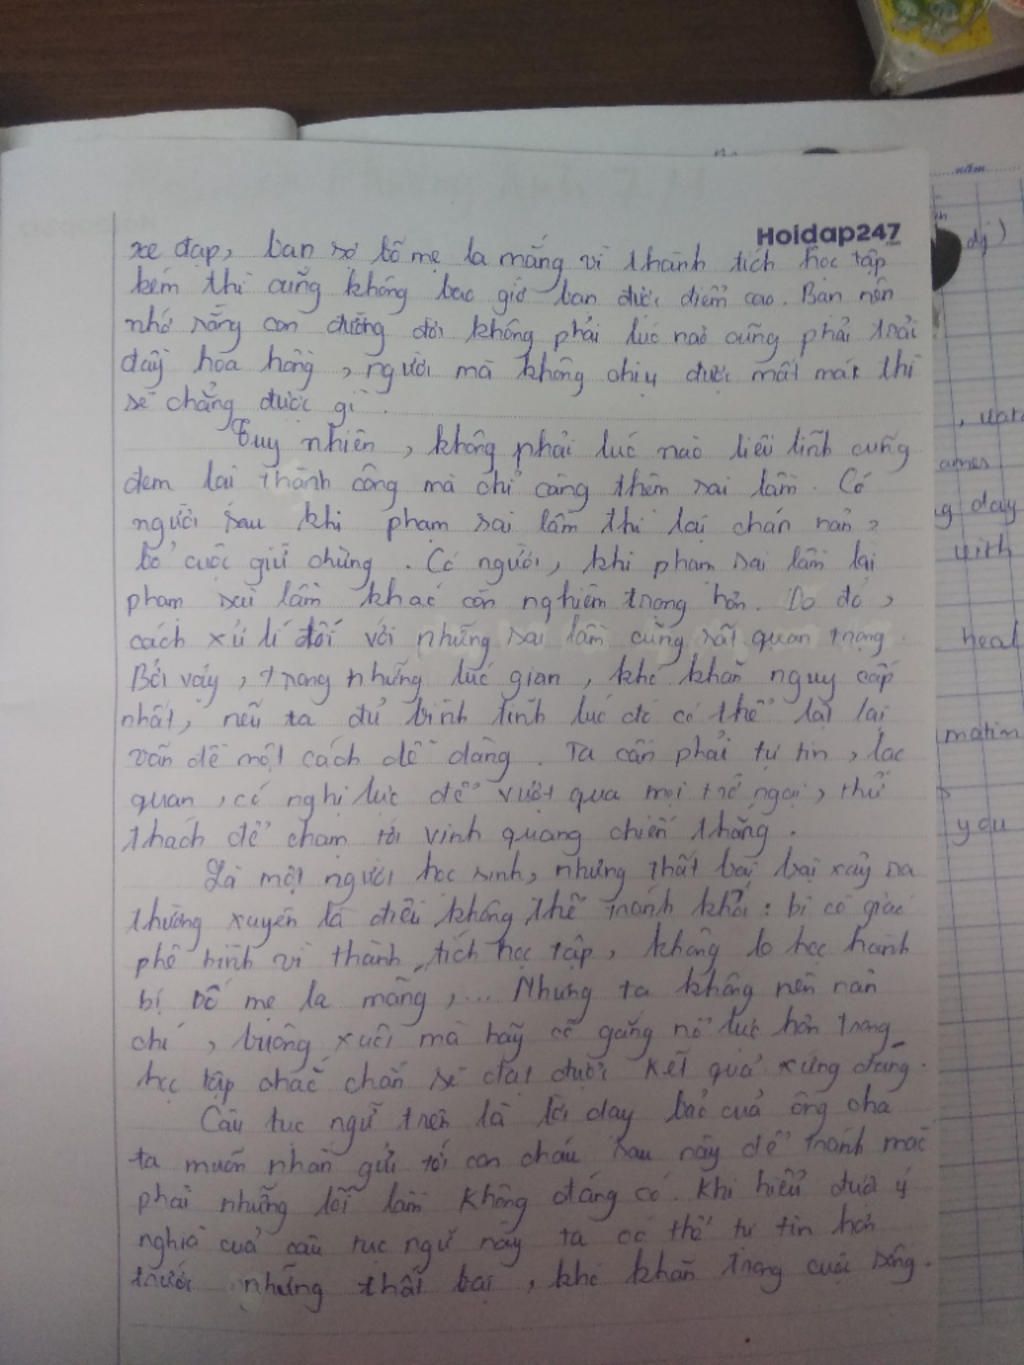 Hoidap247
năm
xe đạp, bạn sợ bố mẹ la mắng vì thành tích học tập
kém thì cũng không bao giờ bạn được điểm cao. Bạn nên
nhớ rằng con đường đời không phải lúc nào cũng phải trải
đầy hoa hồng, người mà không chịu được mất mát thì
sẽ chẳng được gì.
Tuy nhiên, không phải lúc nào liều lĩnh cũng
đem lại thành công mà chỉ càng thêm sai lầm. Có
người sau khi phạm sai lầm thì lại chán nản,
bỏ cuộc giữ chừng. Có người, khi phạm sai lầm lại
phạm sai lầm khác còn nghiêm trọng hơn. Do đó,
cách xử lí đối với những sai lầm cũng rất quan trọng.
Bởi vậy, trong những lúc gian, khó khăn nguy cấp
nhất, nếu ta đủ bình tĩnh lúc đó có thể lật lại
vấn đề một cách dễ dàng. Ta cần phải tự tin, lạc
quan, có nghị lực để vượt qua mọi trở ngại, thử
thách để chạm tới vinh quang chiến thắng.
Là một người học sinh, những thất bại xảy ra
thường xuyên là điều không thể tránh khỏi: bị cô giáo
phê bình vì thành tích học tập, không lo học hành
bị bố mẹ la mắng,... Nhưng ta không nên nản
chí, buông xuôi mà hãy cố gắng nỗ lực hơn trong
học tập chắc chắn sẽ đạt được kết quả xứng đáng.
Câu tục ngữ trên là lời dạy bảo của ông cha
ta muốn nhắn gửi tới con cháu sau này để tránh mắc
phải những lỗi lầm không đáng có. Khi hiểu được ý
nghĩa của câu tục ngữ này ta có thể tự tin hơn
trước những thất bại, khó khăn trong cuộc sống.
ames
day
with
heal
you